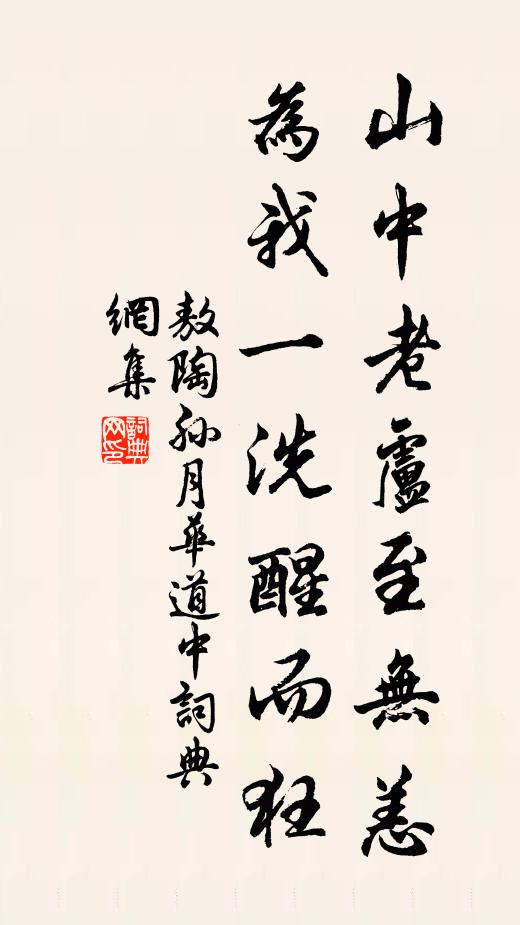 山中老盧至無恙
為我一洗醒而狂
敖陶孫月華道中詞典
網集
詞典
网印